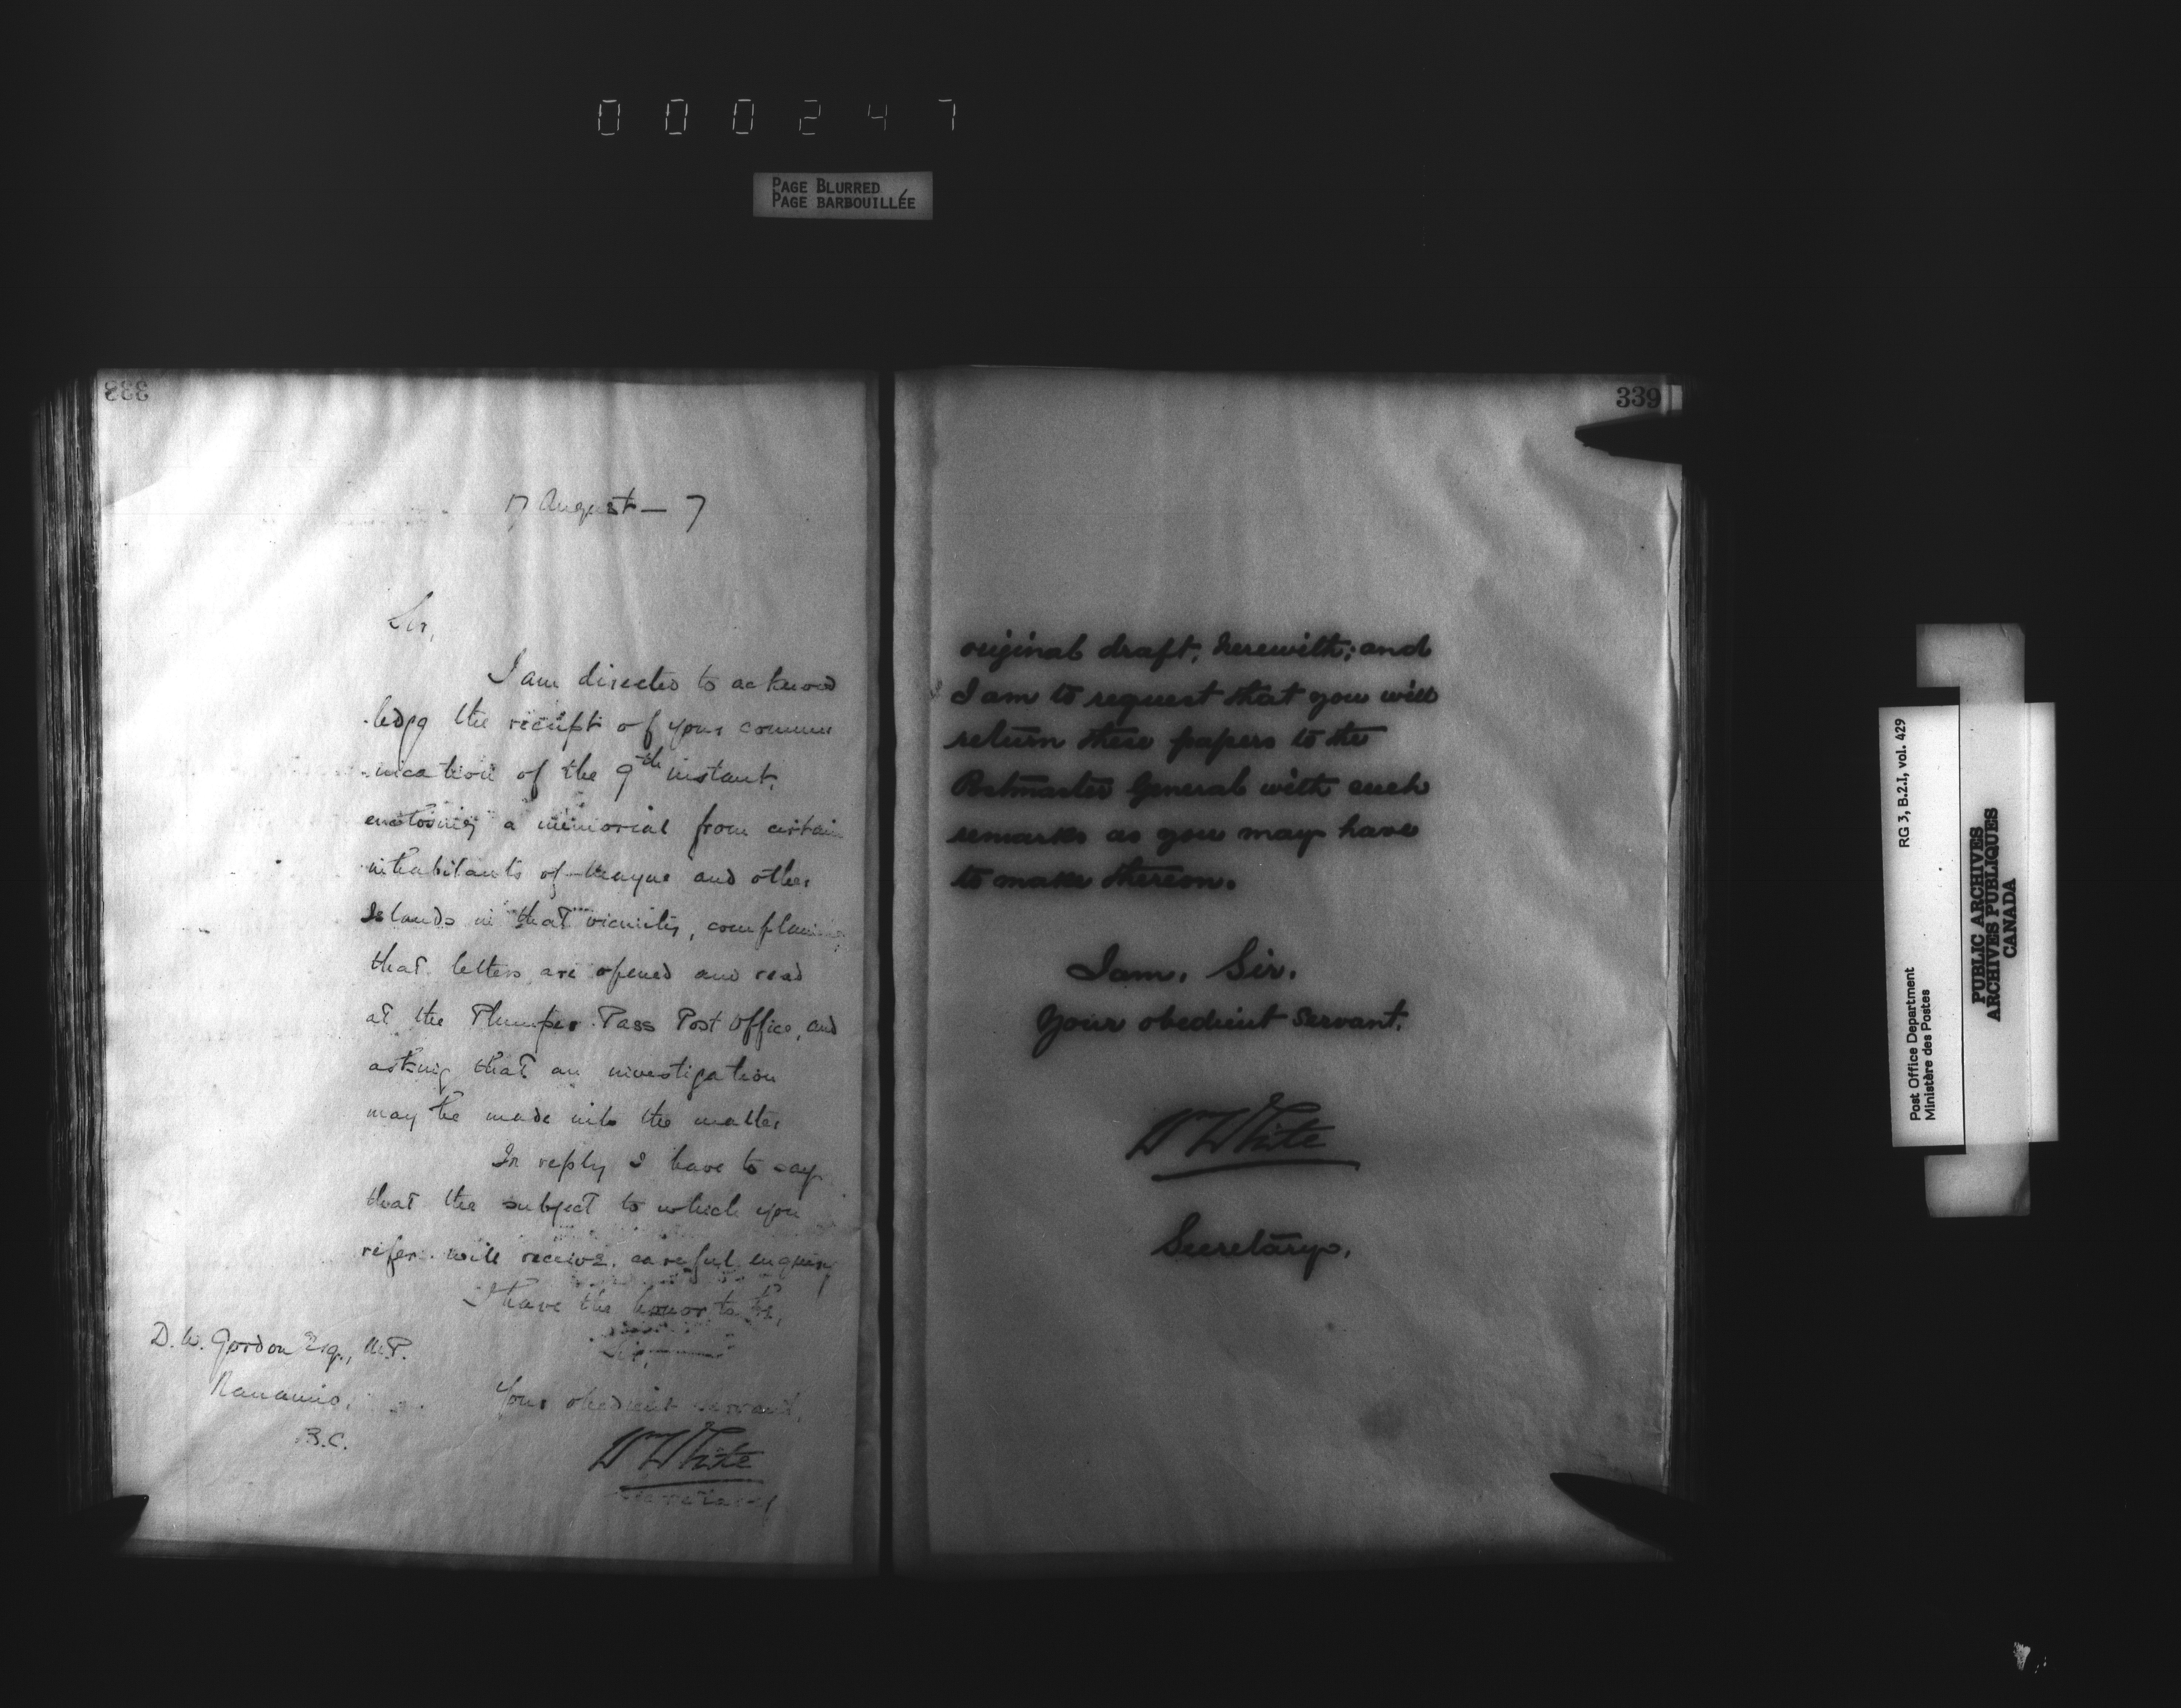 000247
PAGE BLURRED
PAGE BARBOUILLÉE
338
17 August — 7
Sir,
I am directed to acknow
-ledge the receipt of your commu
-nication of the 9th instant,
enclosing a memorial from certain
inhabitants of Mayne and other
Islands in that vicinity, complaining
that letters are opened and read
at the Plumper Pass Post Office, and
asking that an investigation
may be made into the matter
In reply I have to say
that the subject to which you
refer will receive careful enquiry
I have the honor to be,
Sir,
Your obedient servant,
W White
Secretary
D. W. Gordon Esq., M.P.
Nanaimo,
B.C.
339
original draft, herewith; and
I am to request that you will
return these papers to the
Postmaster General with such
remarks as you may have
to make thereon.
I am, Sir,
Your obedient Servant,
W White
Secretary.
RG 3, B.2.I, vol. 429
Post Office Department
Ministère des Postes
PUBLIC ARCHIVES
ARCHIVES PUBLIQUES
CANADA